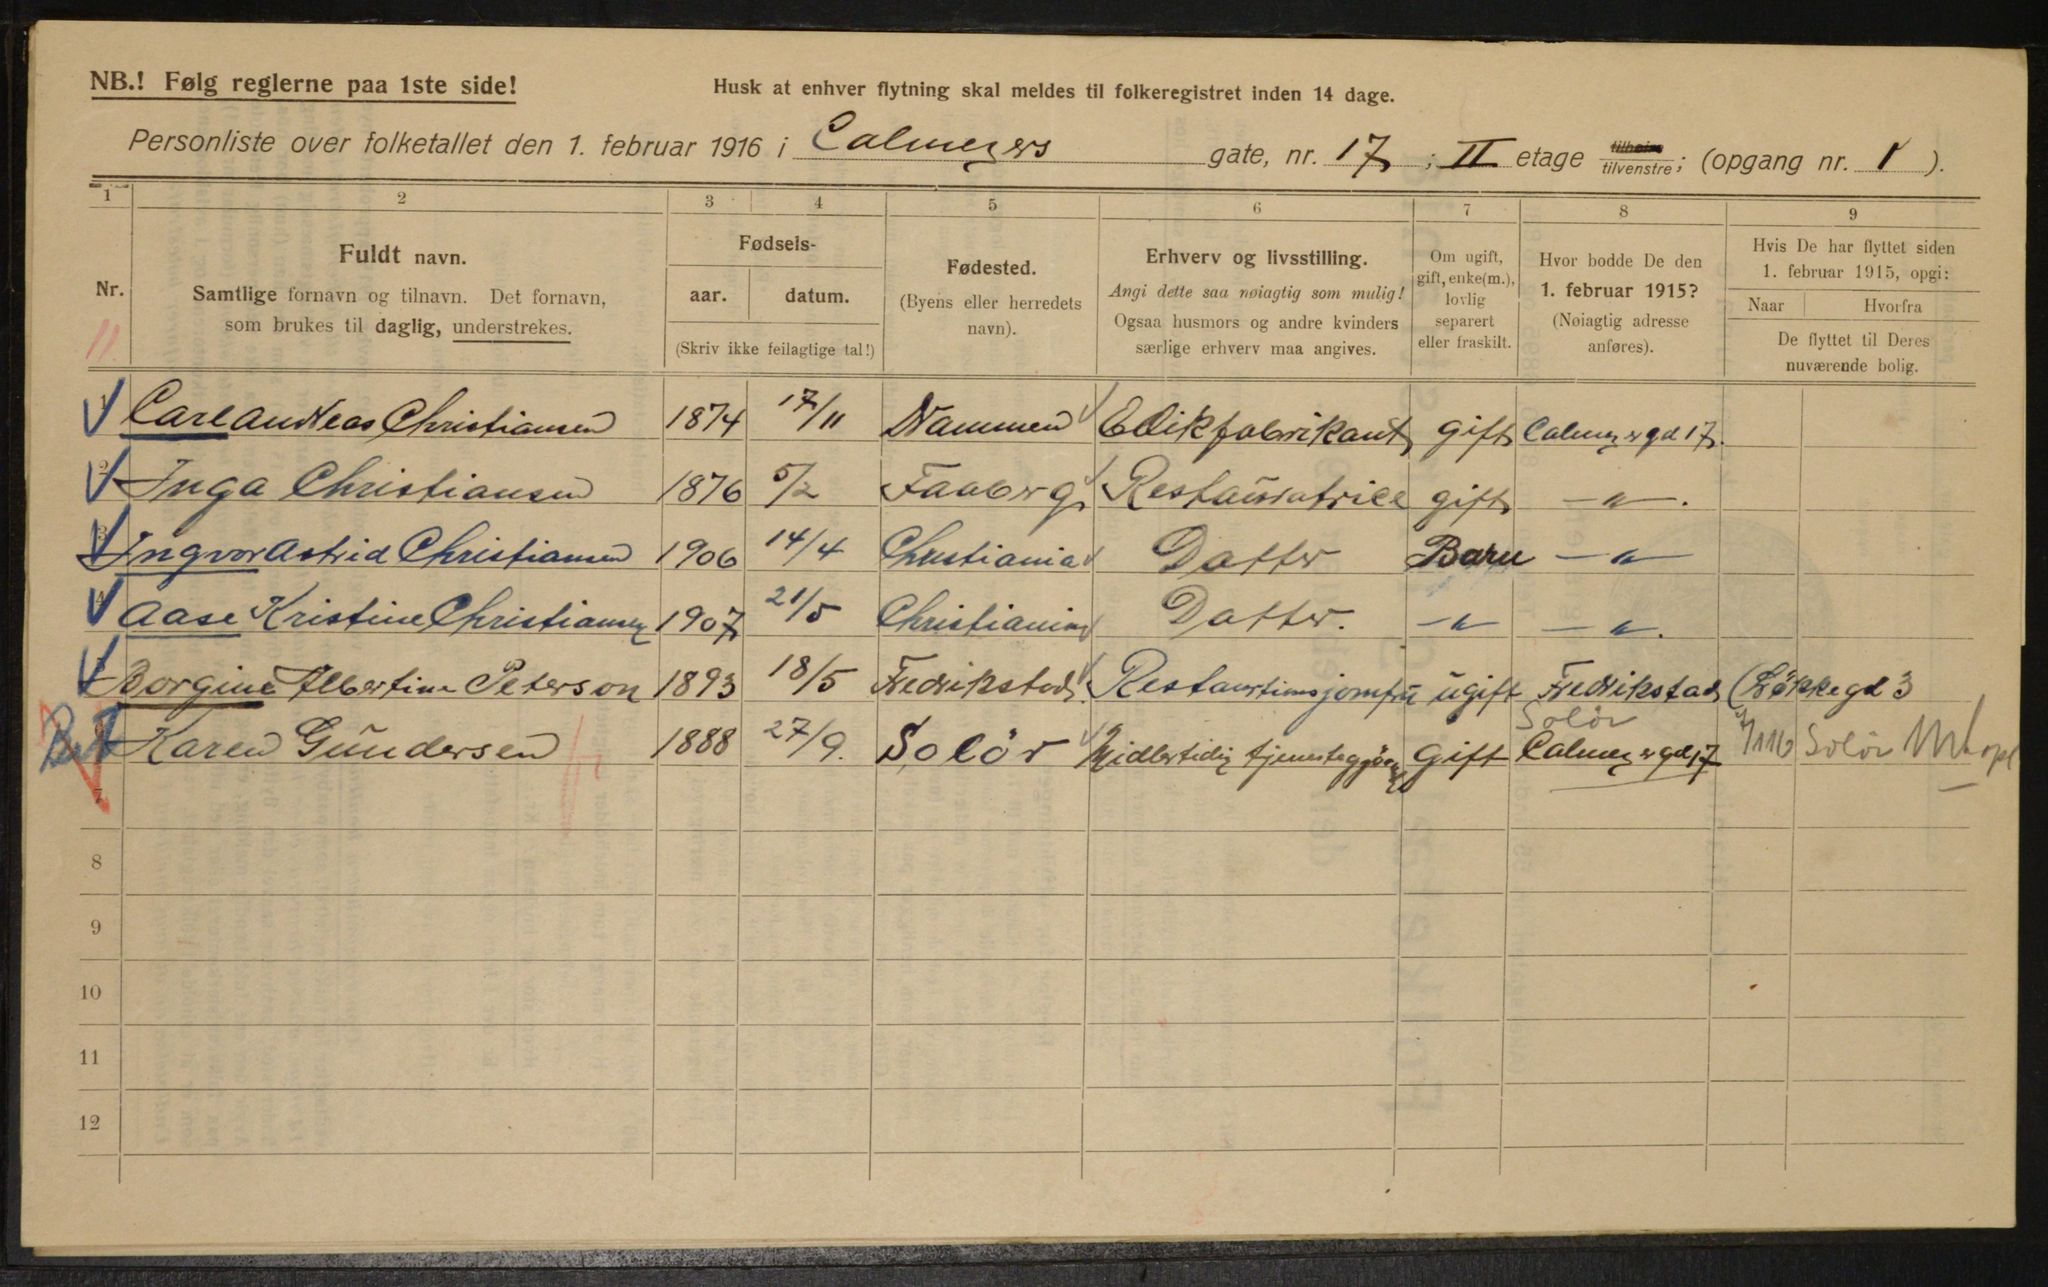 NB.! Følg reglerne paa 1ste side!
Husk at enhver flytning skal meldes til folkeregistret inden 14 dage.
Personliste over folketallet den 1. februar 1916 i Calmeyers gate, nr. 17 ; II etage tilhøire tilvenstre; (opgang nr. 1 ).
1 2 3 4 5 6 7 8 9
Nr.
11.
Fuldt navn.
Samtlige fornavn og tilnavn. Det fornavn,
som brukes til daglig, understrekes.
Fødsels-
aar. datum.
(Skriv ikke feilagtige tal!)
Fødested.
(Byens eller herredets
navn).
Erhverv og livsstilling.
Angi dette saa nøiagtig som mulig!
Ogsaa husmors og andre kvinders
særlige erhverv maa angives.
Om ugift,
gift, enke(m.),
lovlig
separert
eller fraskilt.
Hvor bodde De den
1. februar 1915?
(Nøiagtig adresse
anføres).
Hvis De har flyttet siden
1. februar 1915, opgi:
Naar Hvorfra
De flyttet til Deres
nuværende bolig.
1 Carl Andreas Christiansen 1874 17/11 Drammen Edikfabrikant gift Calmeyergd 17.
2 Inga Christiansen 1876 5/2 Faaberg Restauratrice gift —„—.
3 Ingvor Astrid Christiansen 1906 14/4 Christiania Datter Barn —„—
4 Aase Kristine Christiansen 1907 21/5 Christiania Datter. —„— —„—.
Borgine Albertine Peterson 1893 18/5 Fredrikstad Restaurtionsjomfru ugift Fredrikstad (Løkkegd 3
Solør
Karen Gundersen 1888 27/9. Solör Midlertidig gift Calmeyergd 17 Solør
7
8
9
10
11
12